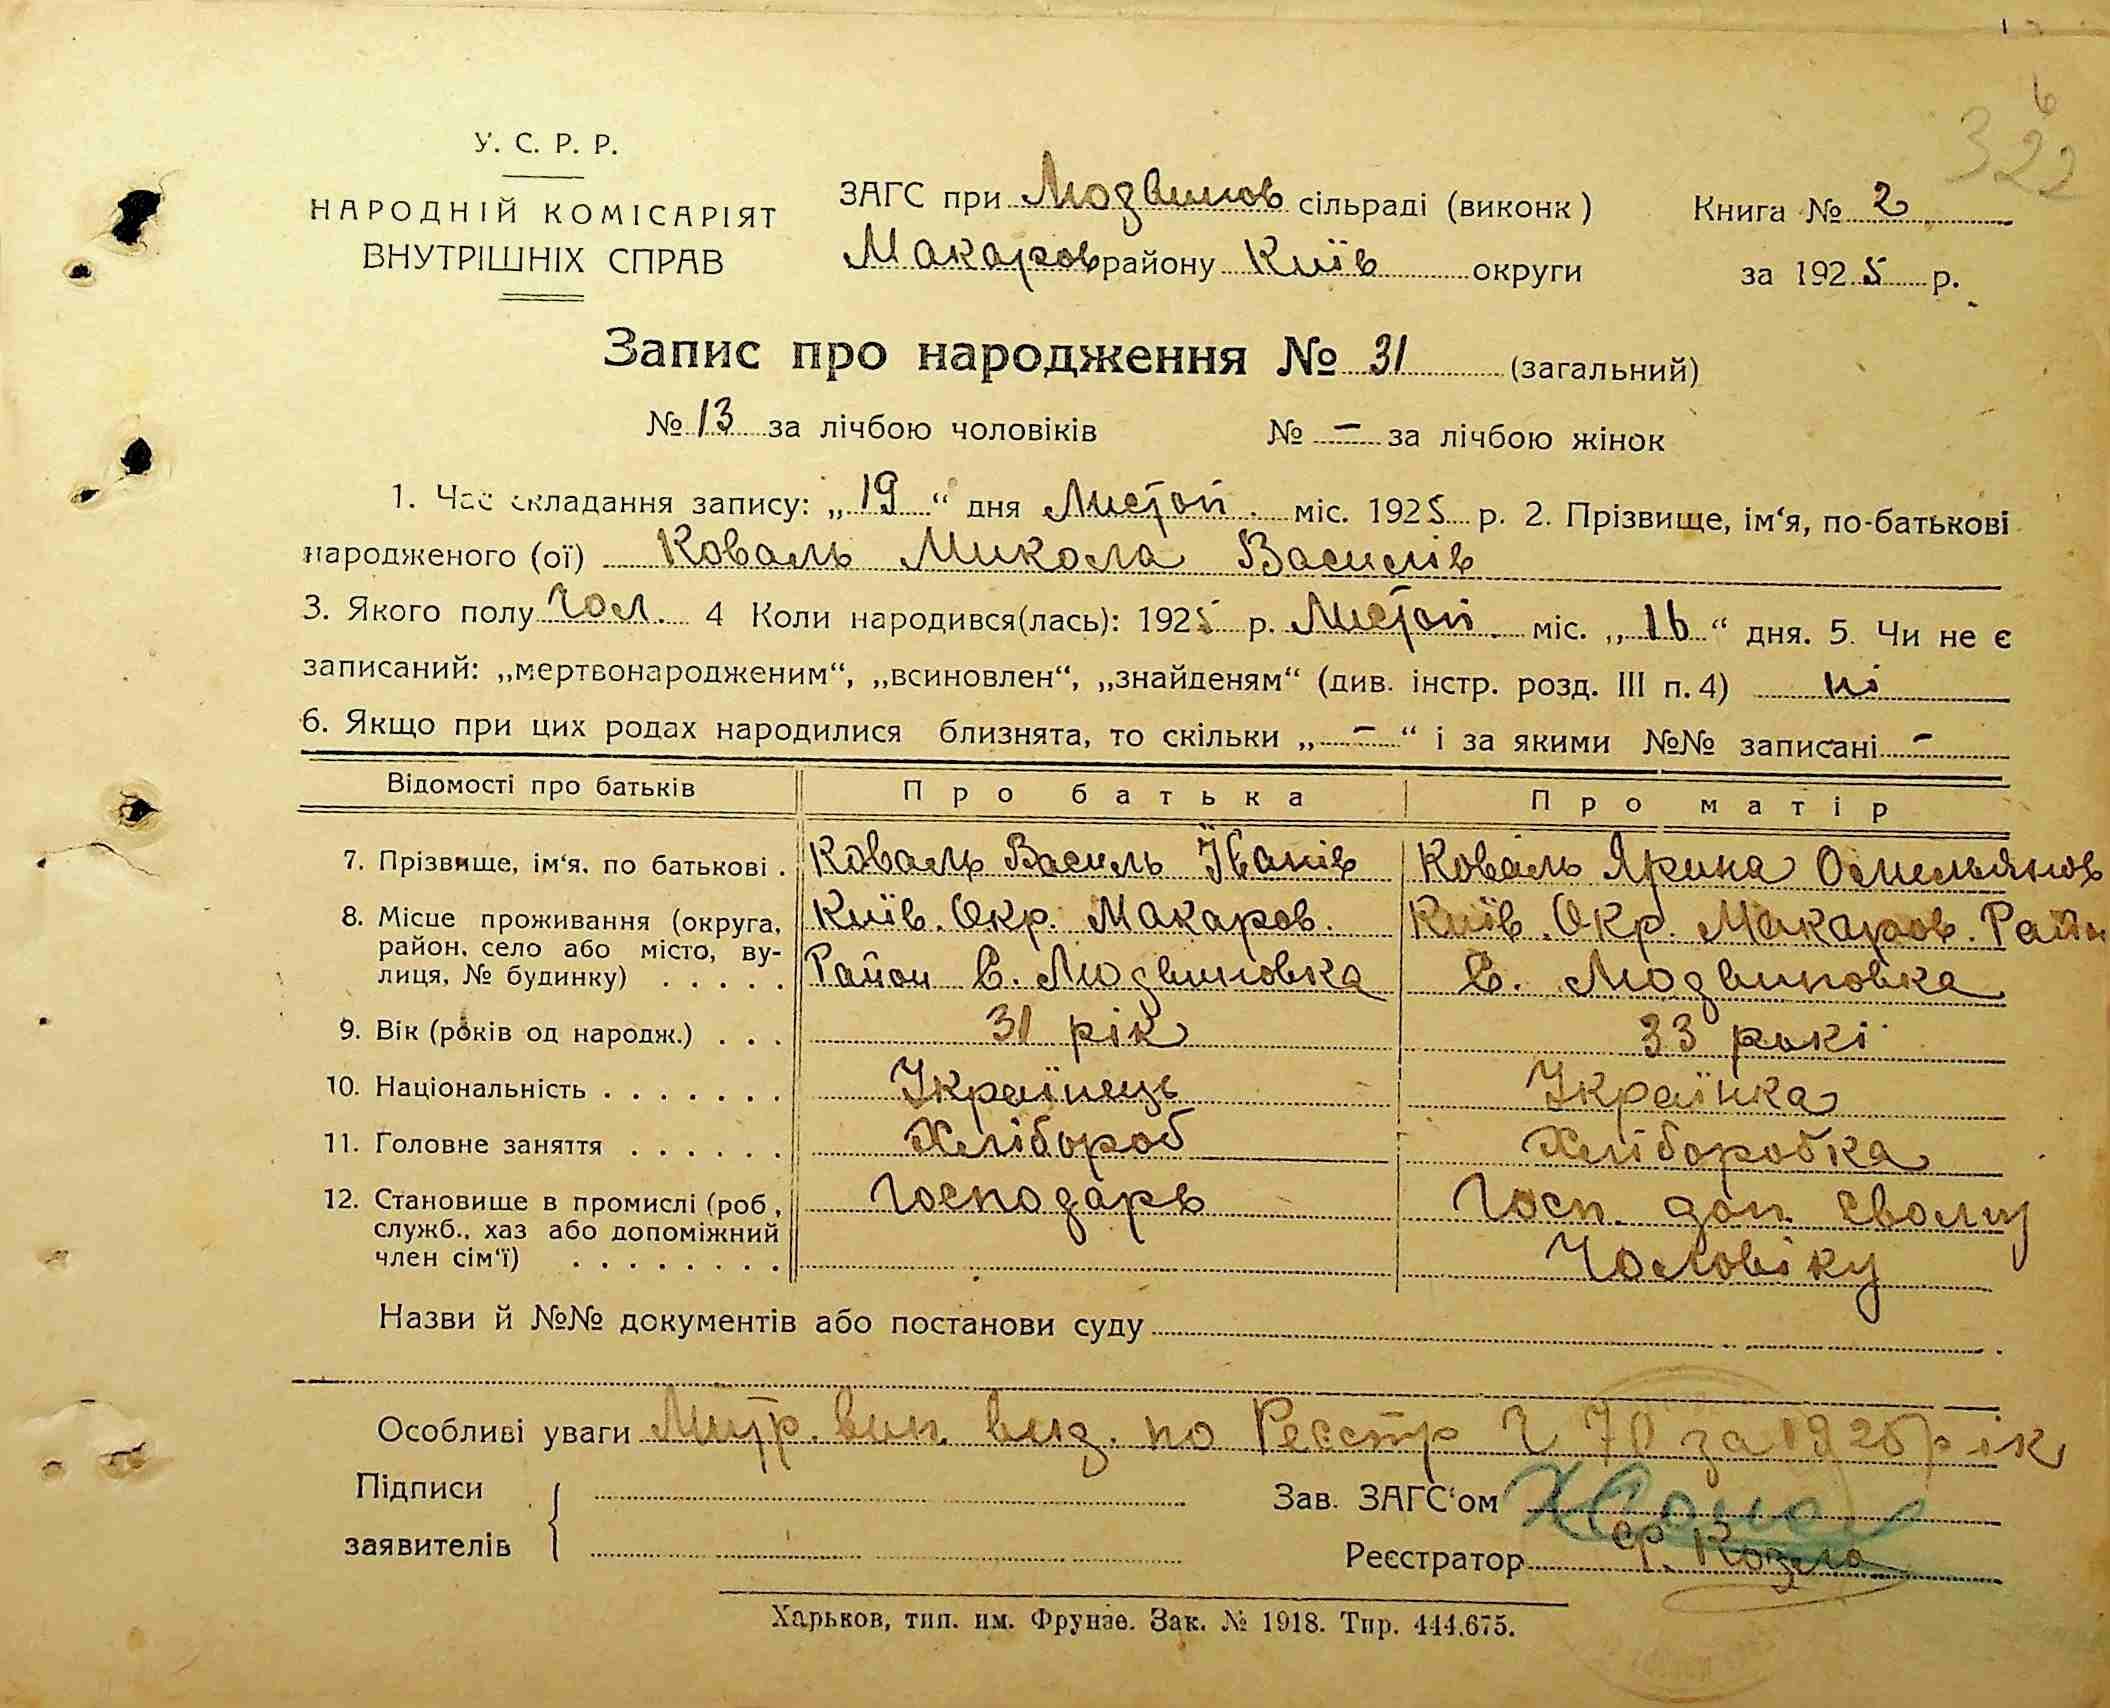 322
6
У. С. Р. Р.
НАРОДНІЙ КОМІСАРІЯТ
ВНУТРІШНІХ СПРАВ
ЗАГС при Людвинов сільраді (виконк)
Макаров району Київ округи
Книга № 2
за 1925 р.
Запис про народження № 31 (загальний)
№ 13 за лічбою чоловіків № - за лічбою жінок
1. Час складання запису: „19“ дня Листоп. міс. 1925 р. 2. Прізвище, ім‘я, по-батькові
народженого (ої) Коваль Микола Василів
3. Якого полу Чол. 4 Коли народився(лась): 1925 р. Листоп. міс. „16“ дня. 5. Чи не є
записаний: „мертвонародженим“, „всиновлен“, „знайденям“ (див. інстр. розд. III п. 4) ні
6. Якщо при цих родах народилися близнята, то скільки „-“ і за якими №№ записані -
Відомості про батьків Про батька Про матір
7. Прізвище, ім‘я, по батькові . Коваль Василь Їванів Коваль Ярина Омельянов
8. Місце проживання (округа, район, село або місто, вулиця, № будинку) . . . . . Київ. Окр. Макаров. Київ. Окр. Макаров. Район
Район С. Людвиновка С. Людвиновка
9. Вік (років од народж.) . . . 31 рік 33 рокі
10. Національність . . . . . . . Українець Українка
11. Головне заняття . . . . . . Хлібороб Хліборобка
12. Становище в промислі (роб, служб., хаз або допоміжний член сім‘ї) . . . . . . . . Господарь Госп. доп. своєму
Чоловіку
Назви й №№ документів або постанови суду
Особливі уваги вип. вид. по Реєстр Ч 70 за 1925 рік
Підписи
заявителів
Зав. ЗАГС‘ом
Реєстратор Ф. Козло
Харьков, тип. им. Фрунзе. Зак. № 1918. Тир. 444.675.